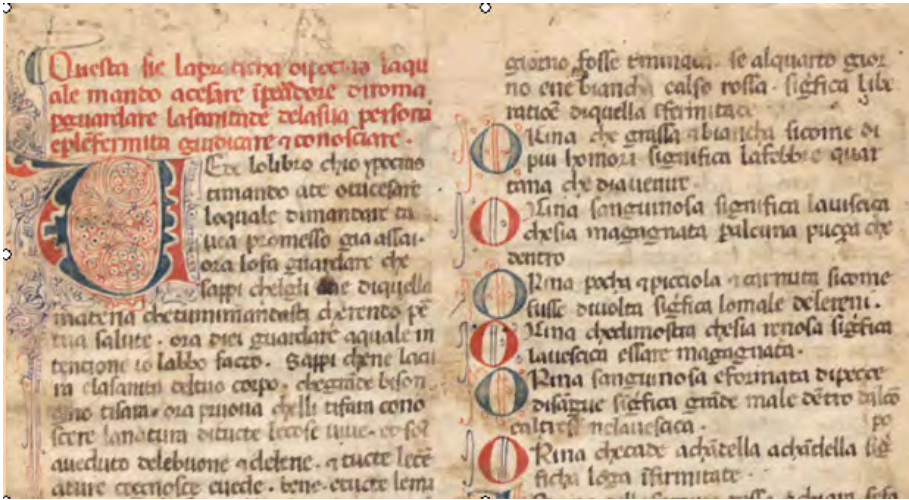 Questa sie la praticha dipocras laqu
ale mando acesare īpadore diroma
pguardare lasanitade dela sua persona
eplēfermita guidicare ⁊ conosciare.
Ete lolibro chio ypocras
timando ate
loquale dimandare
promesso gia assai.
ora losa guardare che
sappi chelgli diquella
materia chetumimandasti
tua salute. ora dici guardare aquale in
tencione io labbo facto. Sappi chene
ra elasanita deltuo corpo. chegrāde bison
gno tisara. ora pruova chelli tisara cono
scere lanatura ditucte lecose
aueduto delebuone ⁊ delene. ⁊ tucte
ature cognosce euede. bene. etucte
giorno fosse. se alquarto gior
no ene biancha calso rossa. sigfica libe
ratioē diquella sfermitate
ORina che grassa ⁊ biancha sicome di
piu homori significa lafebbre quar
tana che diauenire.
OUrina sanguinosa significa lauescica
chesia magagnata palcuna che
dentro
ORina pocha ⁊ picciola ⁊ carnuta sicome
fusse diuolta sigfica lomale delereni.
OUrina chedimostra chesia renosa sigfica
lauescica essare magagnata.
ORina sanguinosa eformata dipecce
disāgue sigfica grāde male dētro
nelauescica.
po
ORina checade achādella achādella sig
ficha lōga īfirmitate.